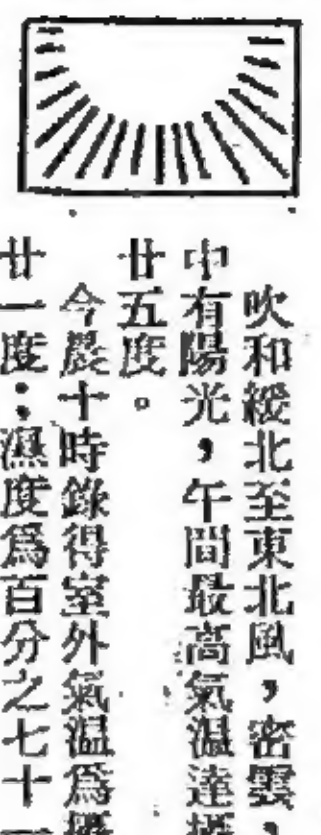 吹和緩北至東北風，密雲，
中有陽光，午間最高氣溫達攝
廿五度。
今晨十時錄得室外氣溫爲攝
廿一度；濕度爲百分之七十一